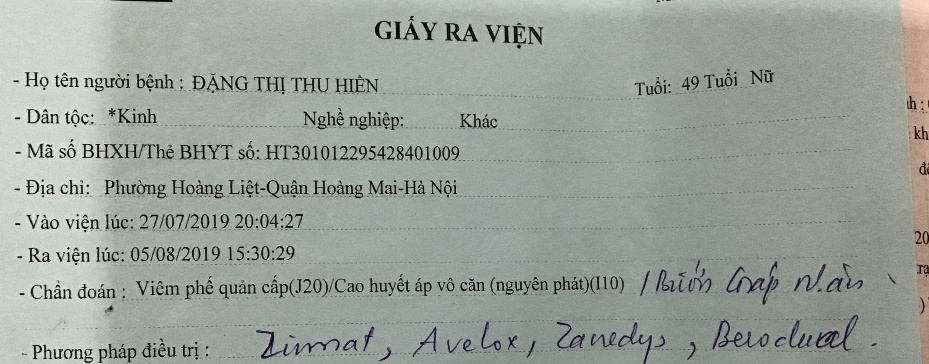 GIẤY RA VIỆN
- Họ tên người bệnh : ĐẶNG THỊ THU HIỀN Tuổi: 49 Tuổi Nữ
- Dân tộc: *Kinh Nghề nghiệp: Khác
- Mã số BHXH/Thẻ BHYT số: HT301012295428401009
- Địa chỉ: Phường Hoàng Liệt-Quận Hoàng Mai-Hà Nội
- Vào viện lúc: 27/07/2019 20:04:27
- Ra viện lúc: 05/08/2019 15:30:29
- Chẩn đoán : Viêm phế quản cấp(J20)/Cao huyết áp vô căn (nguyên phát)(I10) / Bướu giáp nhân
- Phương pháp điều trị : Zinmat, Avelox, Zanedys, Berodual.